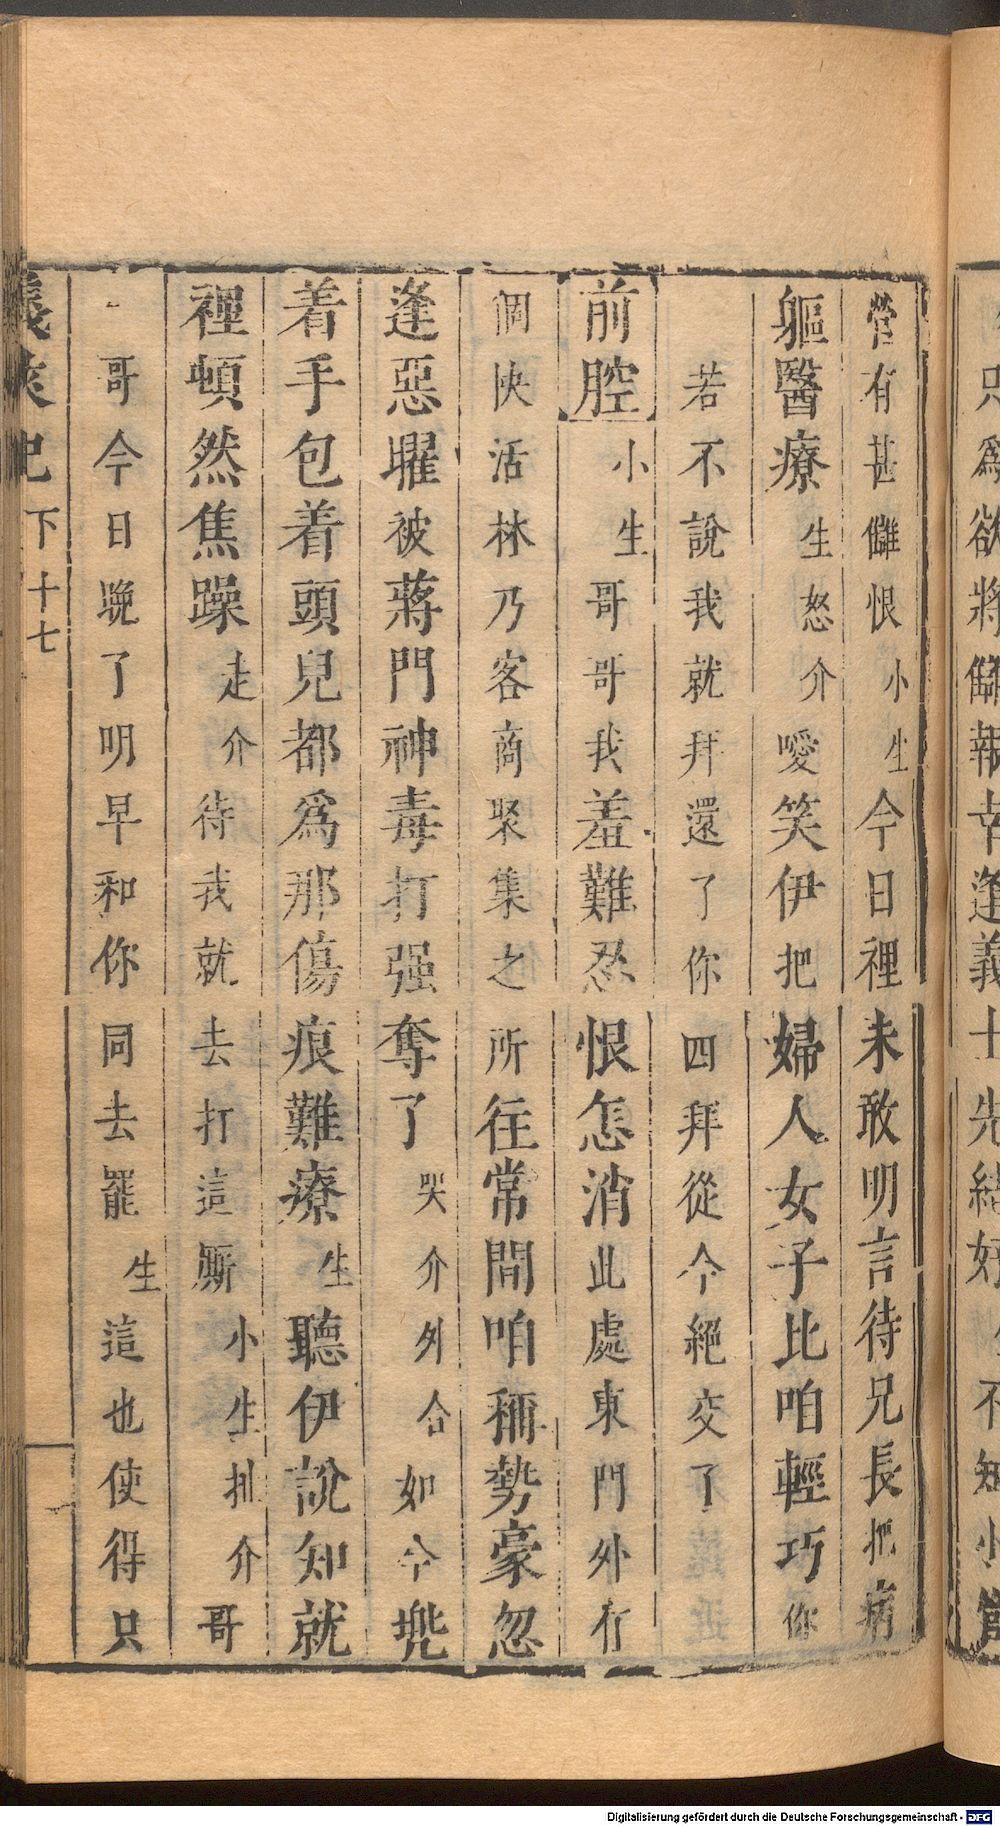 只爲欲將讎報幸逢義士先結好 不知小管
營有甚讎恨小生今日裡未敢明言待兄長把病
軀醫療生怒介噯笑伊把婦人女子比咱輕巧你
若不說我就拜還了你四拜從今絕交了
前腔小生哥哥我羞難忍恨怎消此處東門外有
個快活林乃客商聚集之所往常間咱稱勢豪忽
逢惡曜被蔣門神毒打强奪了哭介外合如今兠
着手包着頭兒都爲那傷痕難療生聽伊說知就
裡頓然焦躁走介待我就去打這厮小生扯介哥
哥今日晚了明早和你同去罷生這也使得只
義俠記 下 十七
Digitalisierung gefördert durch die Deutsche Forschungsgemeinschaft - DFG